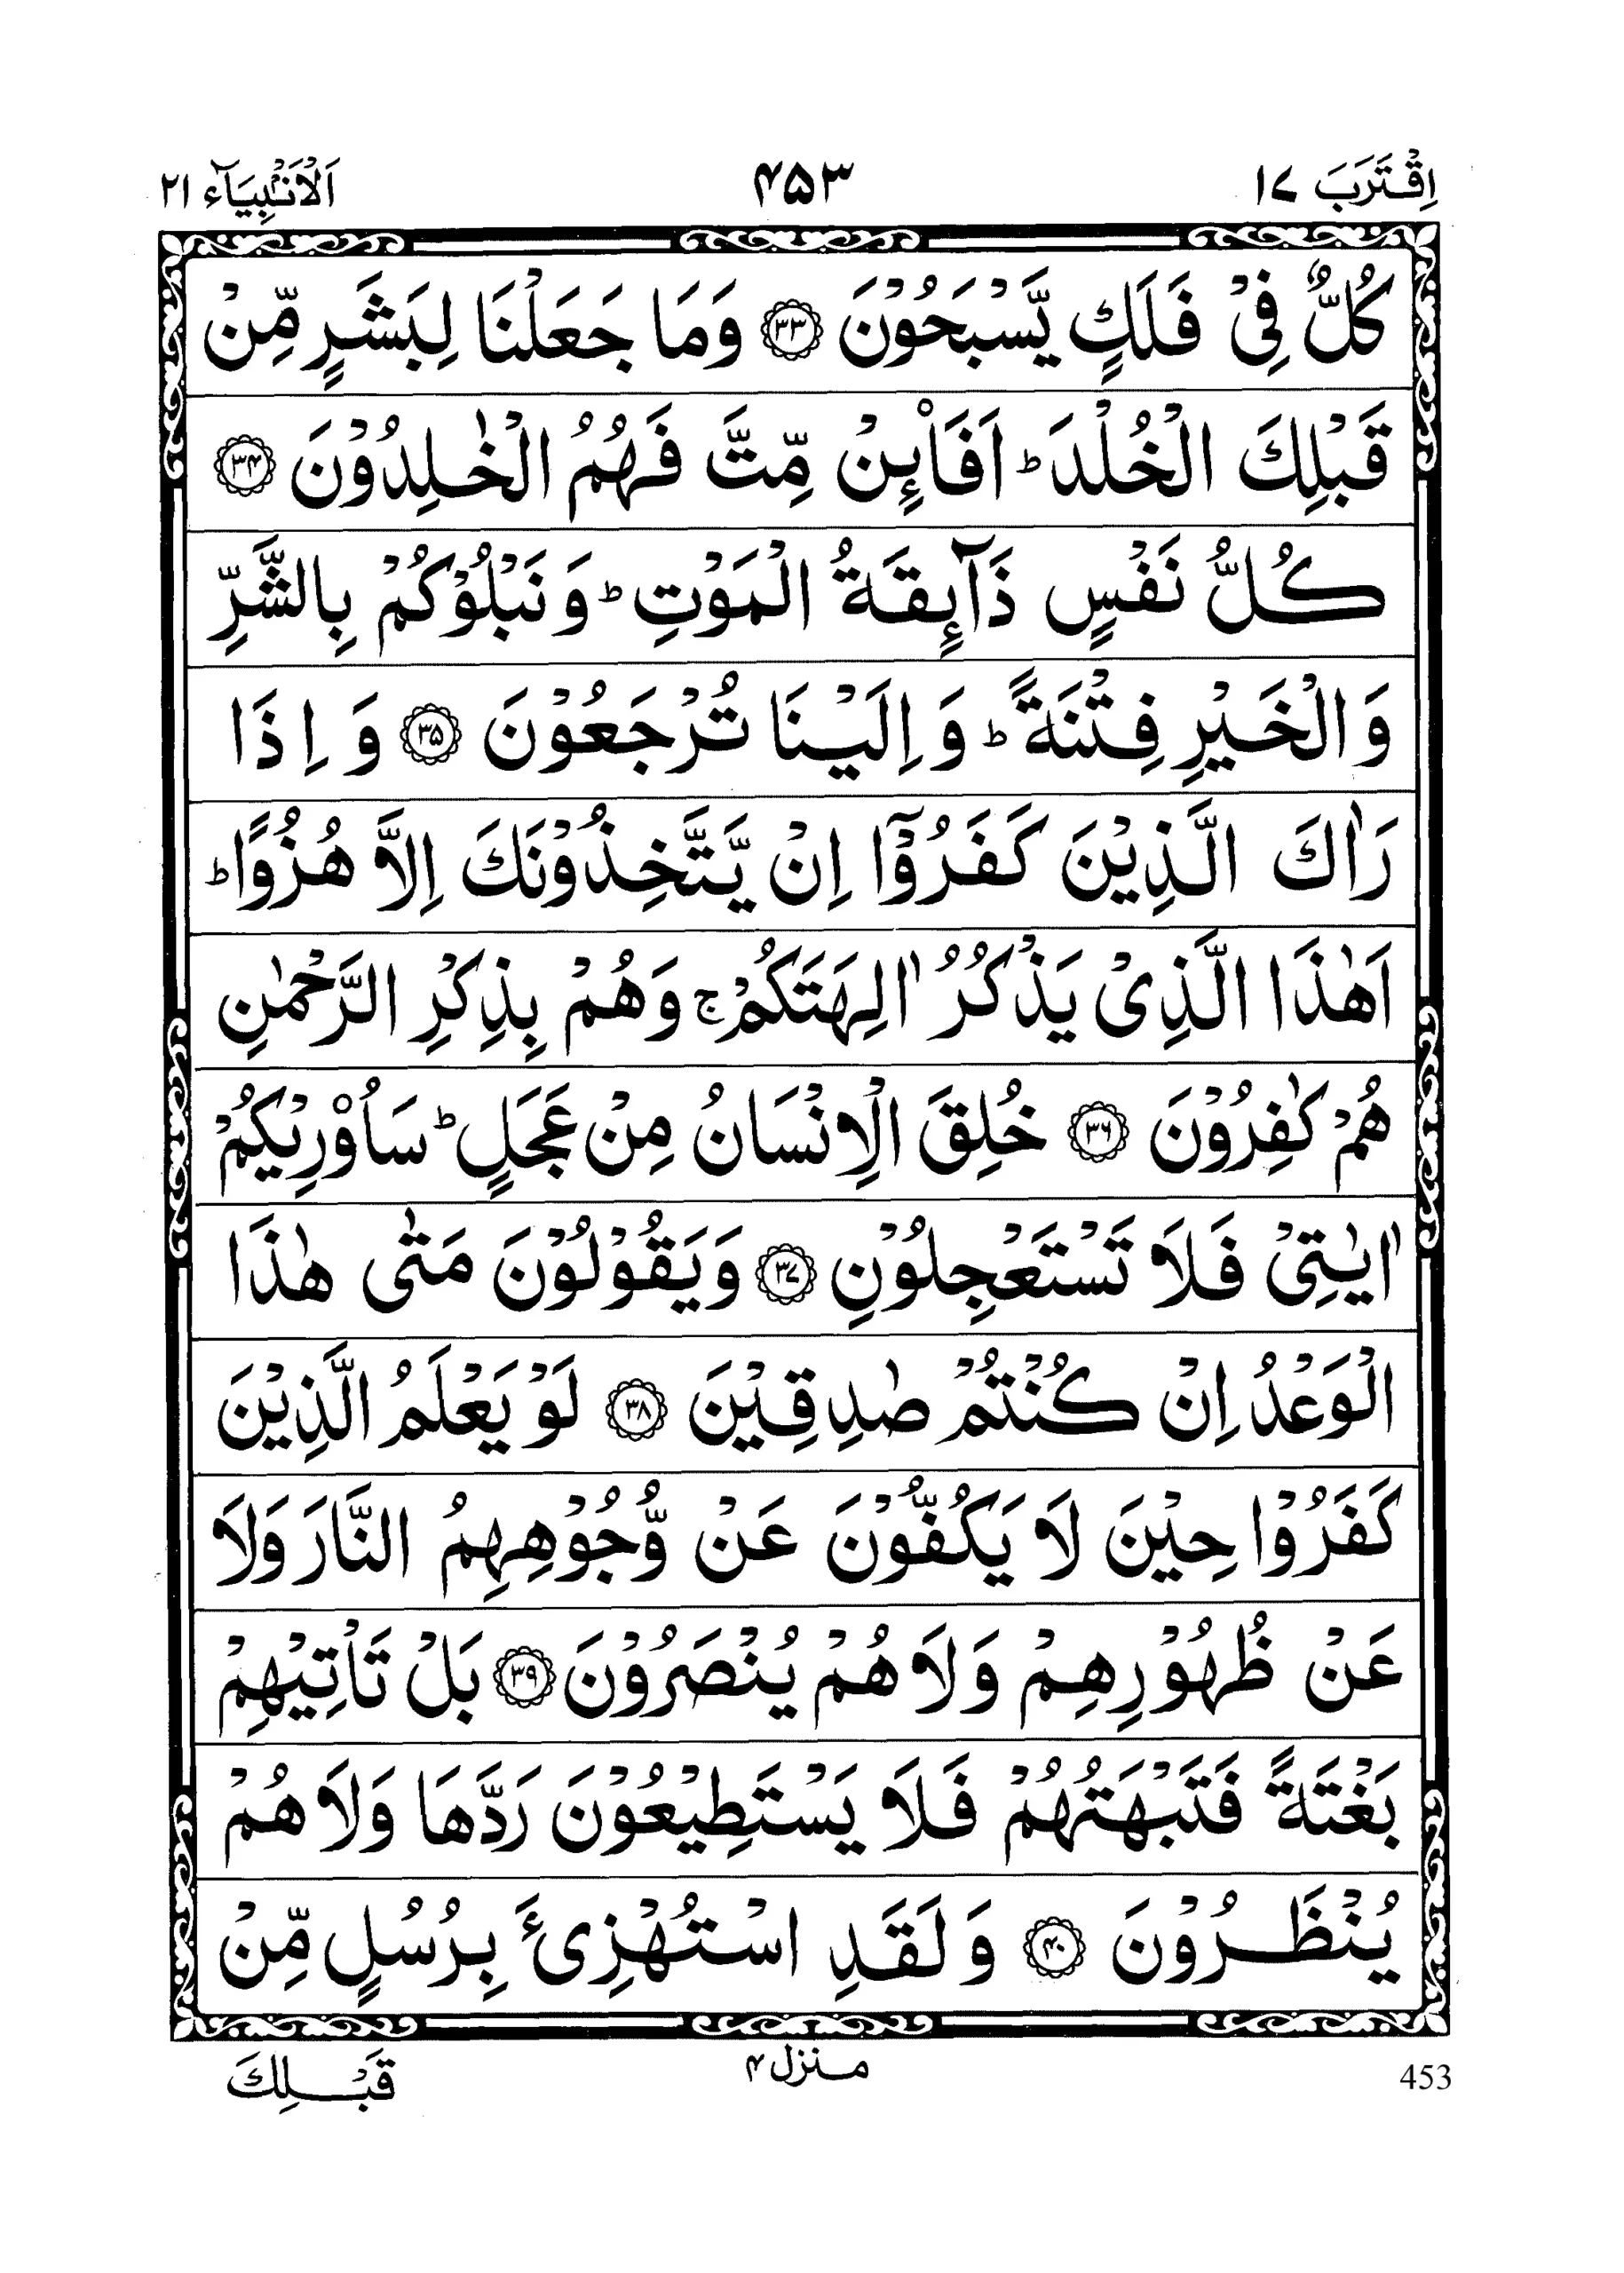 اِقْتَرَبَ ١٧ ۴۵۳ اَلْاَنْۢبِيَآء ٢١
كُلٌّ فِیْ فَلَكٍ یَّسْبَحُوْنَ ﴿۳۳﴾ وَمَا جَعَلْنَا لِبَشَرٍ مِّنْ
قَبْلِكَ الْخُلْدَ ؕ اَفَا۟ئِنْ مِّتَّ فَهُمُ الْخٰلِدُوْنَ ﴿۳۴﴾
كُلُّ نَفْسٍ ذَآئِقَةُ الْمَوْتِ ؕ وَنَبْلُوْكُمْ بِالشَّرِّ
وَالْخَیْرِ فِتْنَةً ؕ وَاِلَیْنَا تُرْجَعُوْنَ ﴿۳۵﴾ وَاِذَا
رَاٰكَ الَّذِیْنَ كَفَرُوْۤا اِنْ یَّتَّخِذُوْنَكَ اِلَّا هُزُوًا ؕ
اَهٰذَا الَّذِیْ یَذْكُرُ اٰلِهَتَكُمْ ۚ وَهُمْ بِذِكْرِ الرَّحْمٰنِ
هُمْ كٰفِرُوْنَ ﴿۳۶﴾ خُلِقَ الْاِنْسَانُ مِنْ عَجَلٍ ؕ سَاُورِیْكُمْ
اٰیٰتِیْ فَلَا تَسْتَعْجِلُوْنِ ﴿۳۷﴾ وَیَقُوْلُوْنَ مَتٰی هٰذَا
الْوَعْدُ اِنْ كُنْتُمْ صٰدِقِیْنَ ﴿۳۸﴾ لَوْ یَعْلَمُ الَّذِیْنَ
كَفَرُوْا حِیْنَ لَا یَكُفُّوْنَ عَنْ وُّجُوْهِهِمُ النَّارَ وَلَا
عَنْ ظُهُوْرِهِمْ وَلَا هُمْ یُنْصَرُوْنَ ﴿۳۹﴾ بَلْ تَاْتِیْهِمْ
بَغْتَةً فَتَبْهَتُهُمْ فَلَا یَسْتَطِیْعُوْنَ رَدَّهَا وَلَا هُمْ
یُنْظَرُوْنَ ﴿۴۰﴾ وَلَقَدِ اسْتُهْزِئَ بِرُسُلٍ مِّنْ
453 منزل ۴ قَبْلِكَ